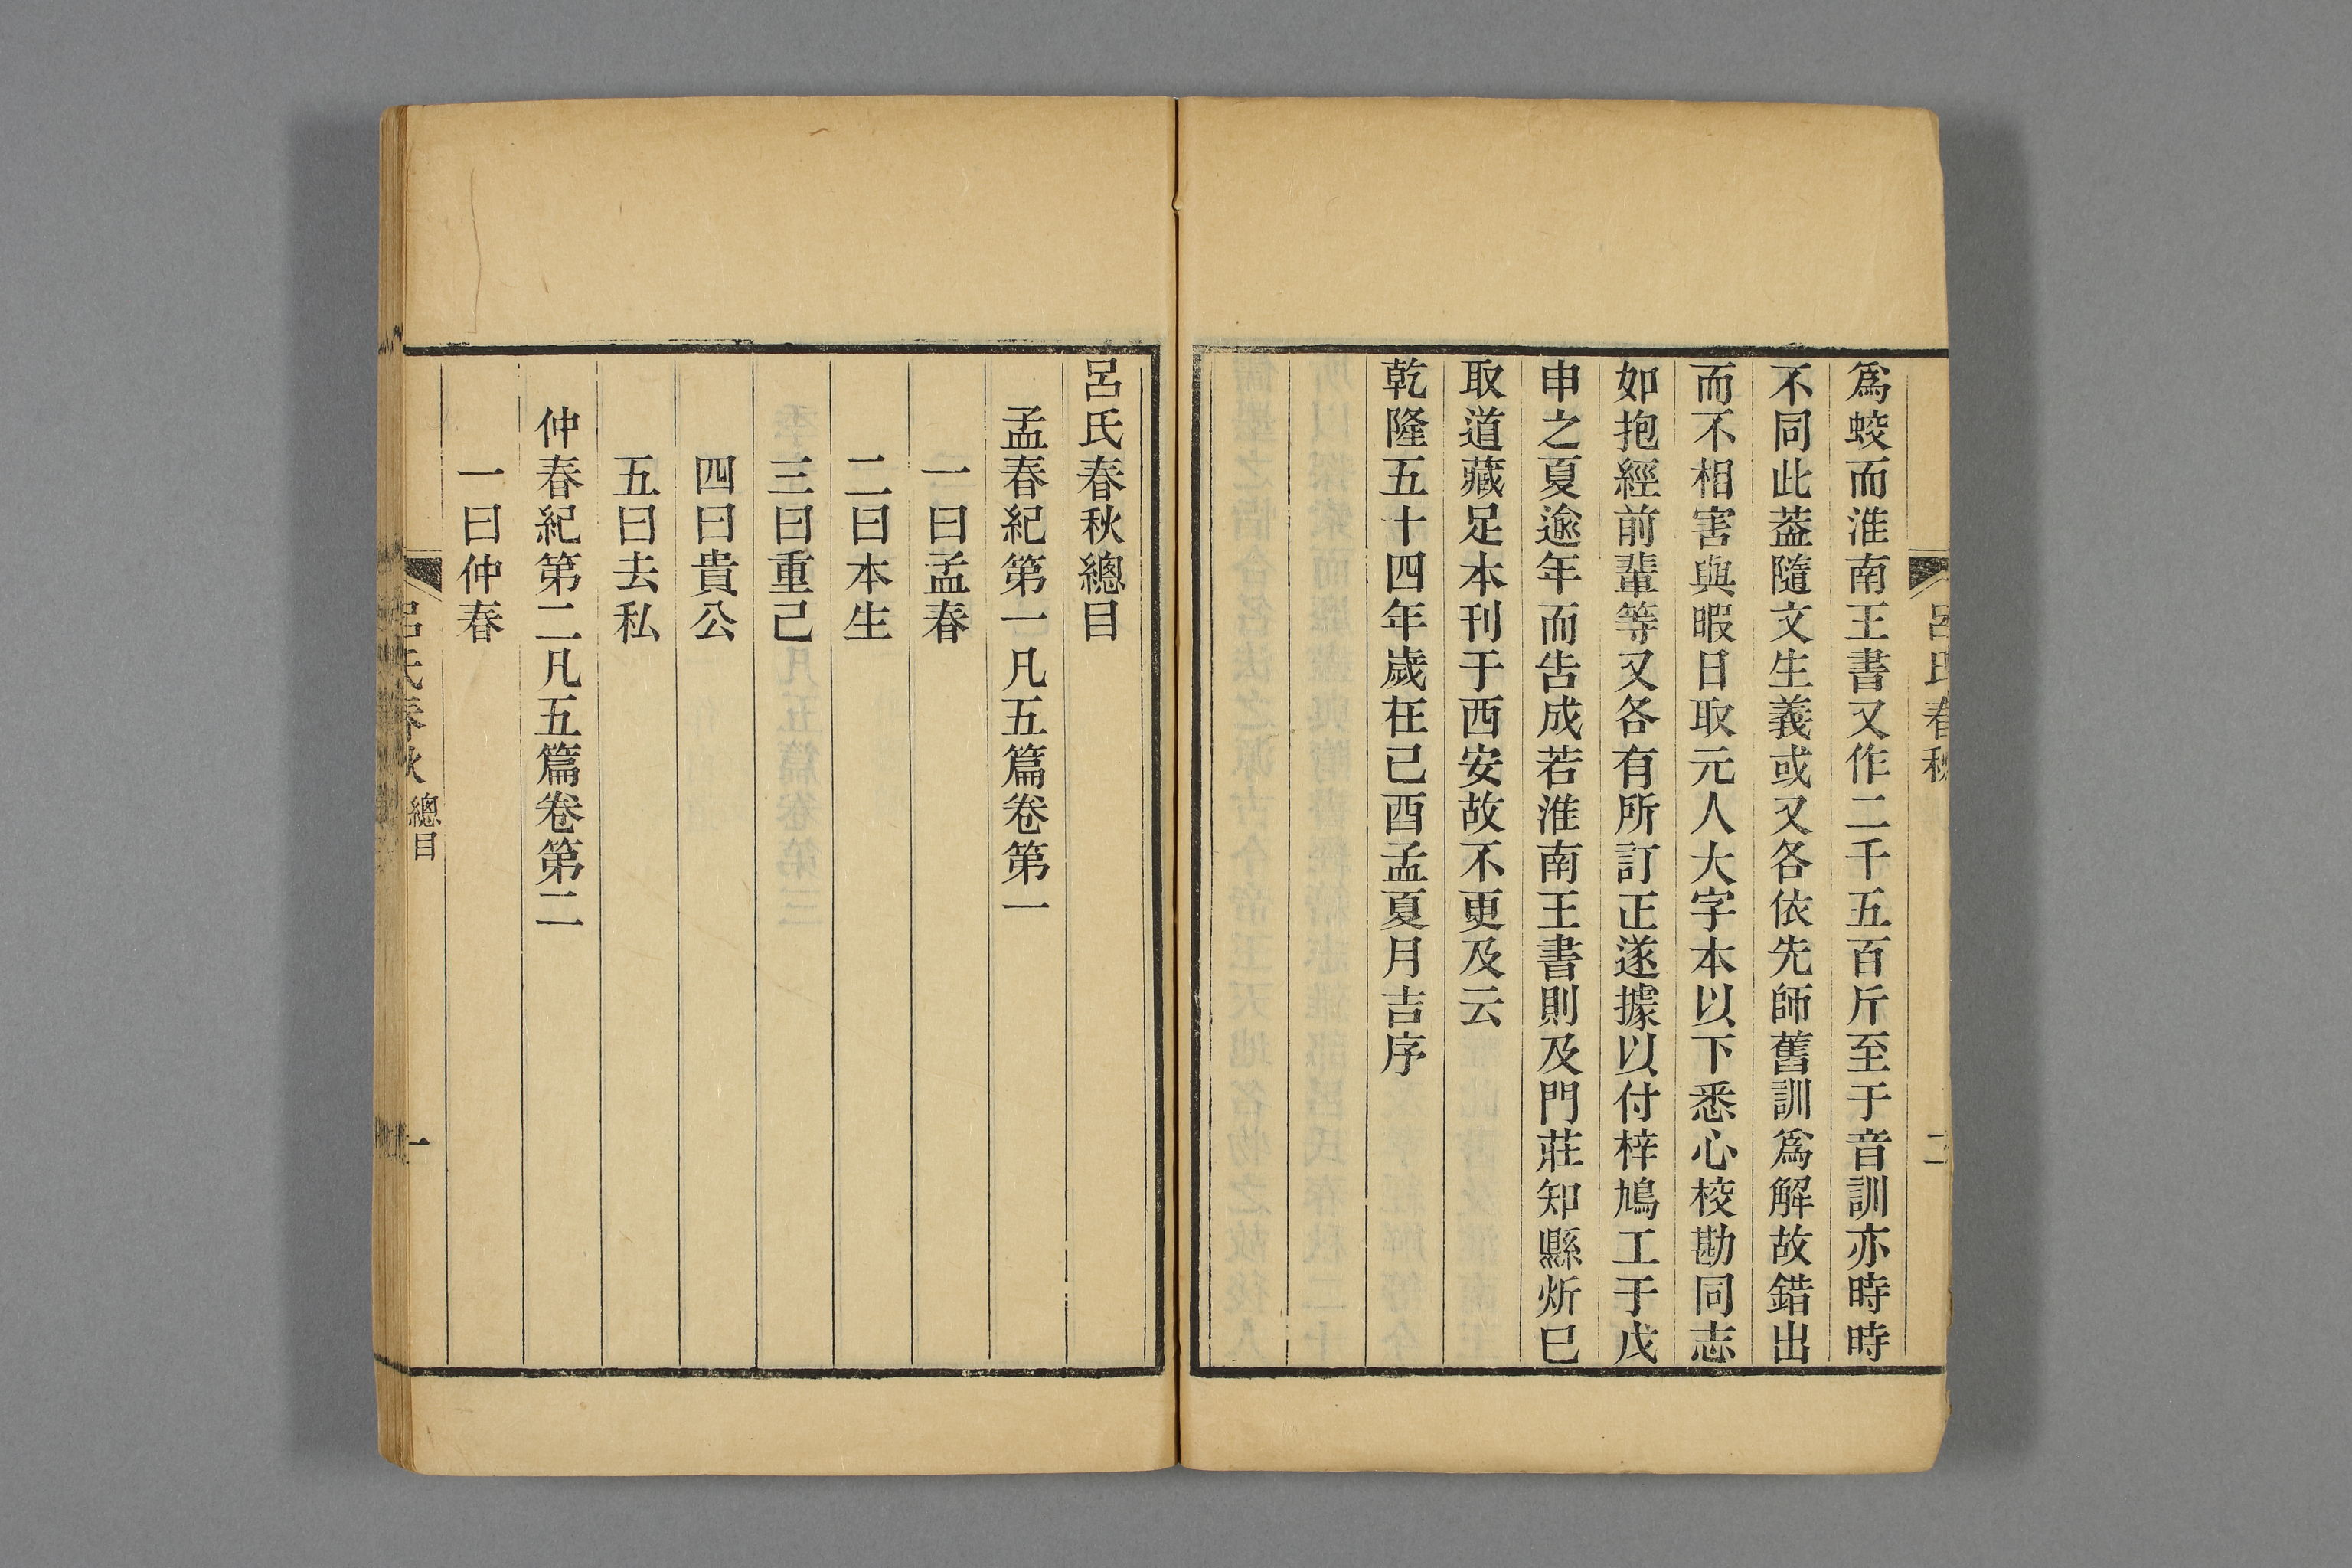 爲蛟而淮南王書又作二千五百斤至于音訓亦時時
不同此葢隨文生義或又各依先師舊訓爲解故錯出
而不相害與暇日取元人大字本以下悉心校勘同志
如抱經前輩等又各有所訂正遂據以付梓鳩工于戊
申之夏逾年而告成若淮南王書則及門莊知縣炘已
取道藏足本刊于西安故不更及云
乾隆五十四年歲在己酉孟夏月吉序
呂氏春秋總目
孟春紀第一凡五篇卷第一
一曰孟春
二曰本生
三曰重己
四曰貴公
五曰去私
仲春紀第二凡五篇卷第二
一曰仲春
呂氏春秋 總目 一